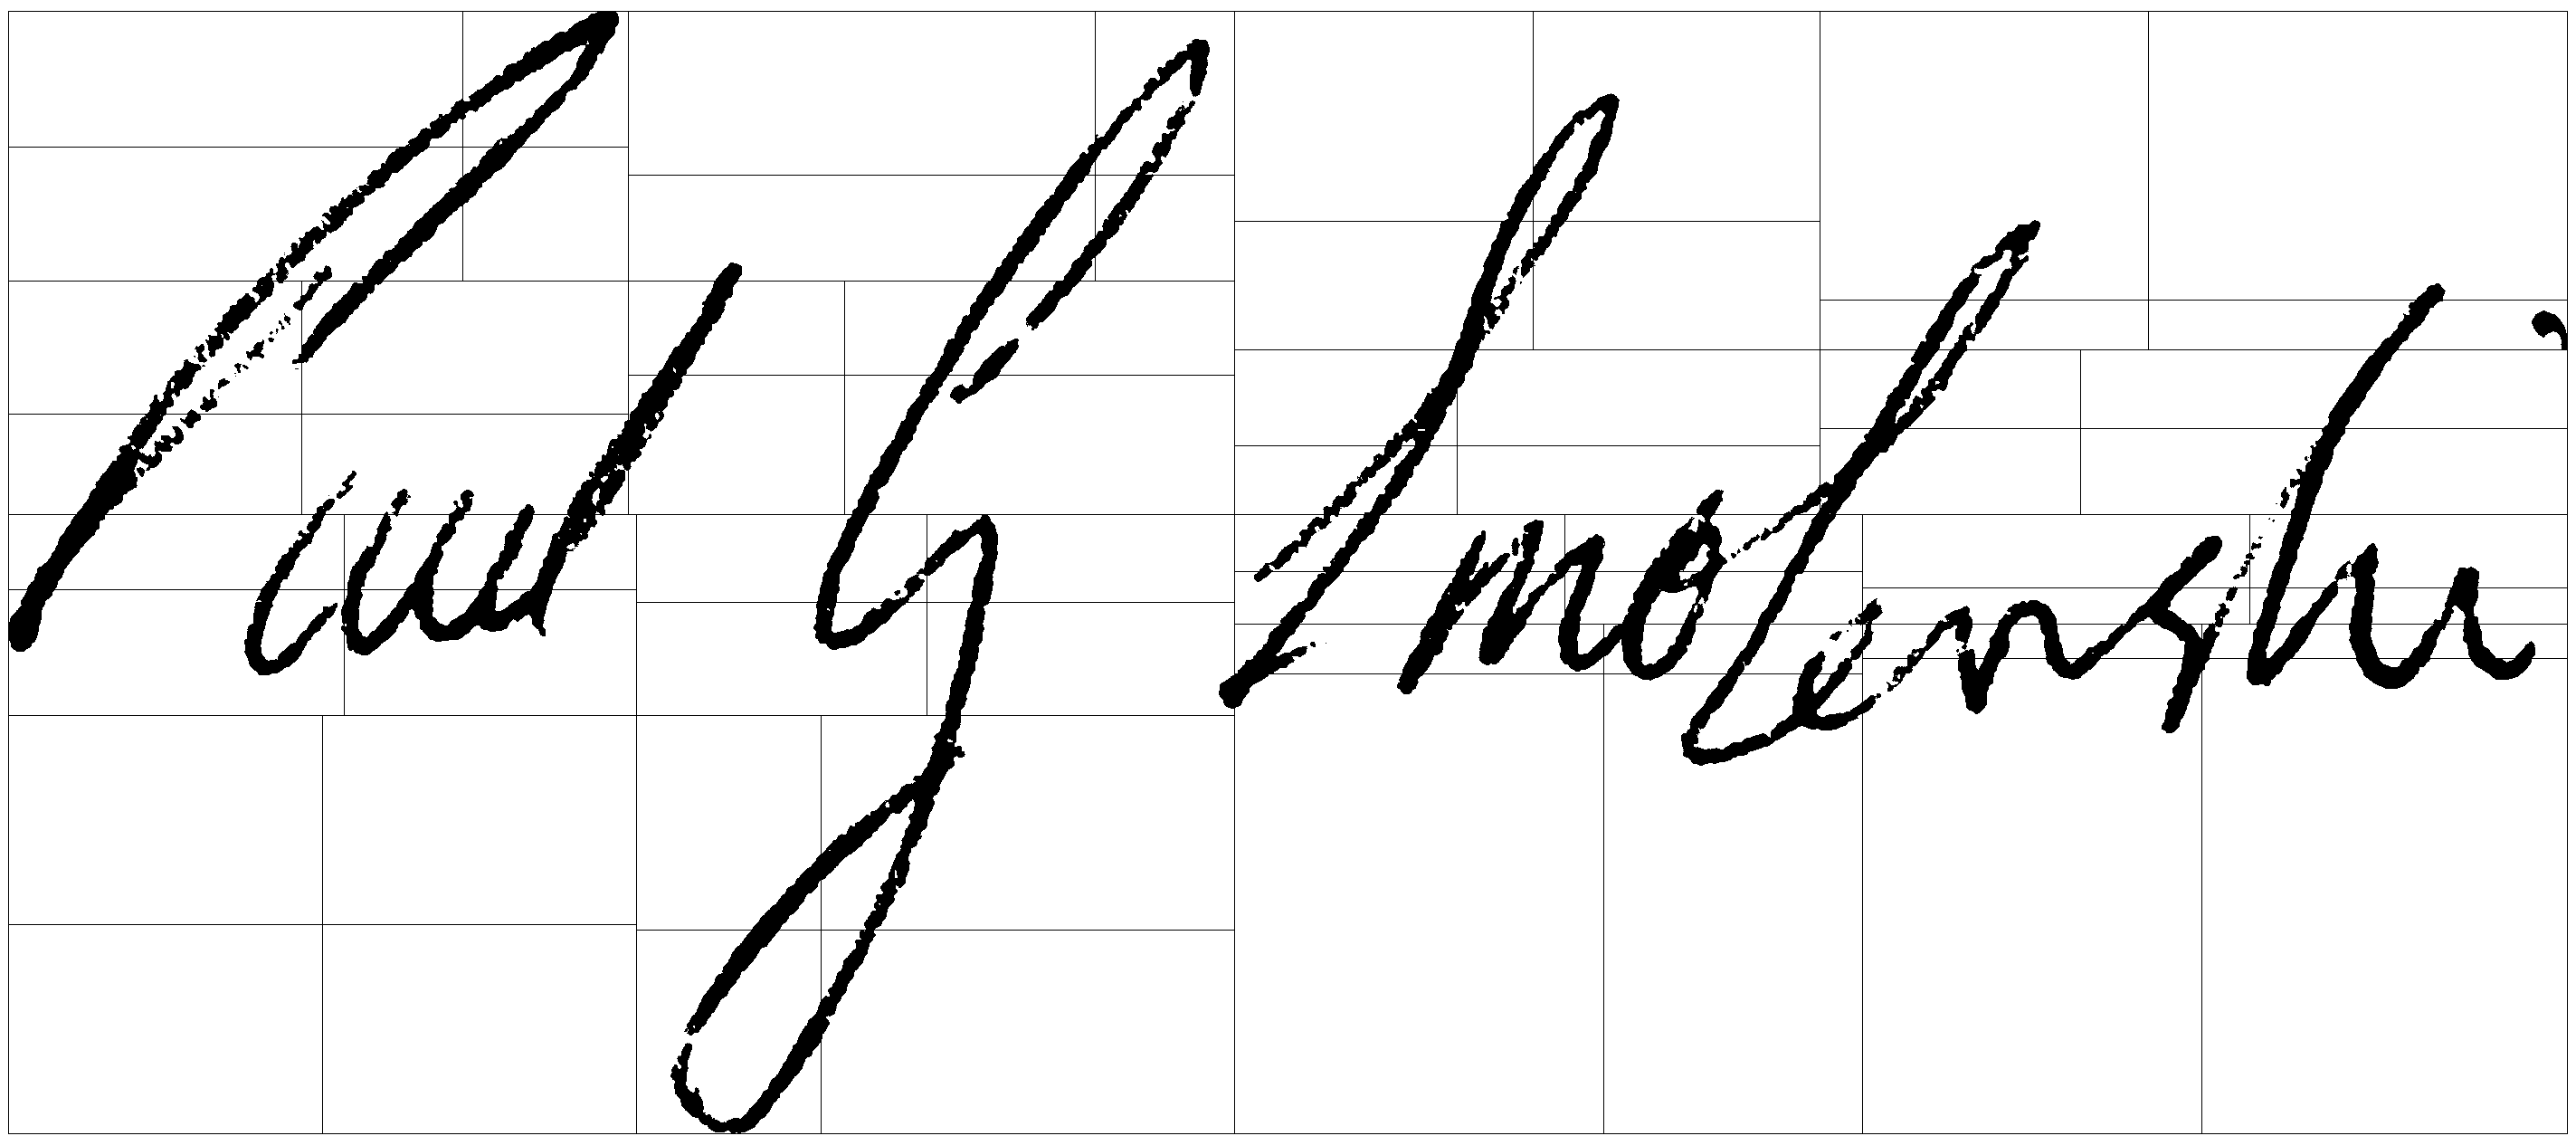 Paul G. Smolenski